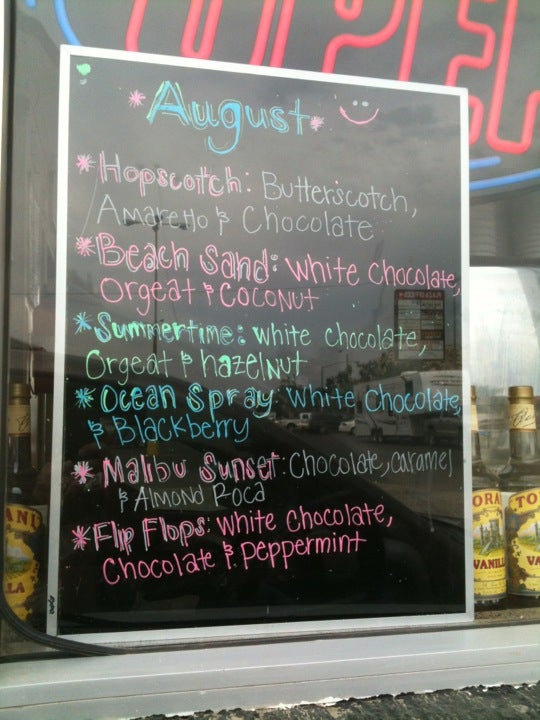 OPEN
August
Hopscotch: Butterscotch,
Amaretto & Chocolate
Beach Sand: White Chocolate,
Orgeat & Coconut
Summertime: white chocolate,
Orgeat & hazelnut
Ocean Spray: White Chocolate
& Blackberry
Malibu Sunset: Chocolate, caramel
& Almond Roca
Flip Flops: White Chocolate,
Chocolate & Peppermint
ANI
LA
ORA
VANILL
TO
VA